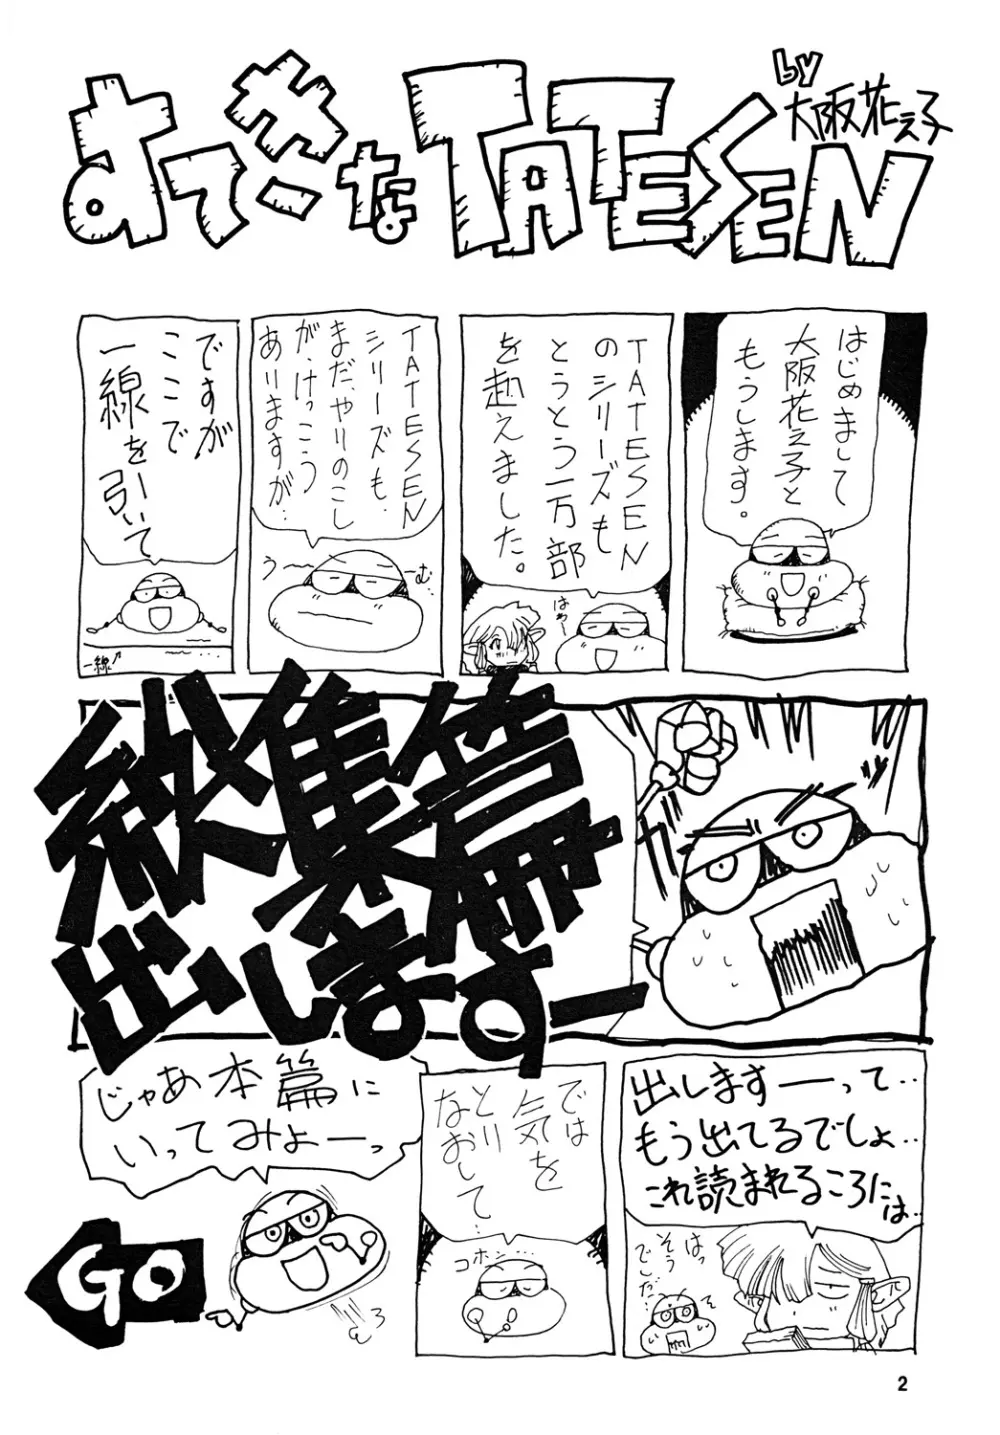 すてきなTATESEN
by
大阪花え子
はじめまして
大阪花え子と
もうします。
TATESEN
のシリーズも
とうとう一万部
を越えました。
はわ〜
TATESEN
シリーズも、
まだ、やりのこし
が、けっこう
ありますが‥
う〜
ーむ‥
ですが
ここで
一線を引いて
一線
縦集篇
出しますー
出しますーって‥
もう出てるでしょ‥
これ読まれるころには‥
はっ
そう
でした‥
では
気を
とり
なおして‥
コホン‥
じゃあ本篇に
いってみよーっ
GO
2